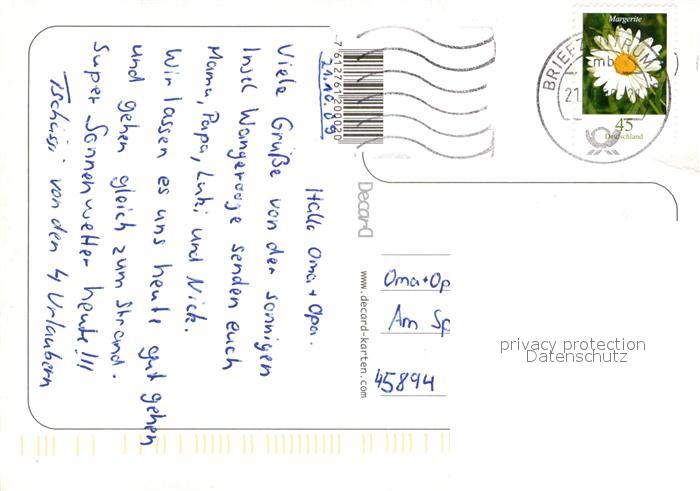 21.10.09
Hallo Oma + Opa.
Viele Grüße von der sonnigen
Insel Wangerooge senden euch
Mama, Papa, Luki und Nick.
Wir lassen es uns heute gut gehen
und gehen gleich zum Strand.
Super Sonnenwetter heute!!!
Tschüssi von den 4 Urlaubern
7612761200020
Decard
www.decard-karten.com
Margerite
45
Deutschland
BRIEFZENTRUM
mb
21.
Oma+Op
Am Sp
45894
privacy protection
Datenschutz